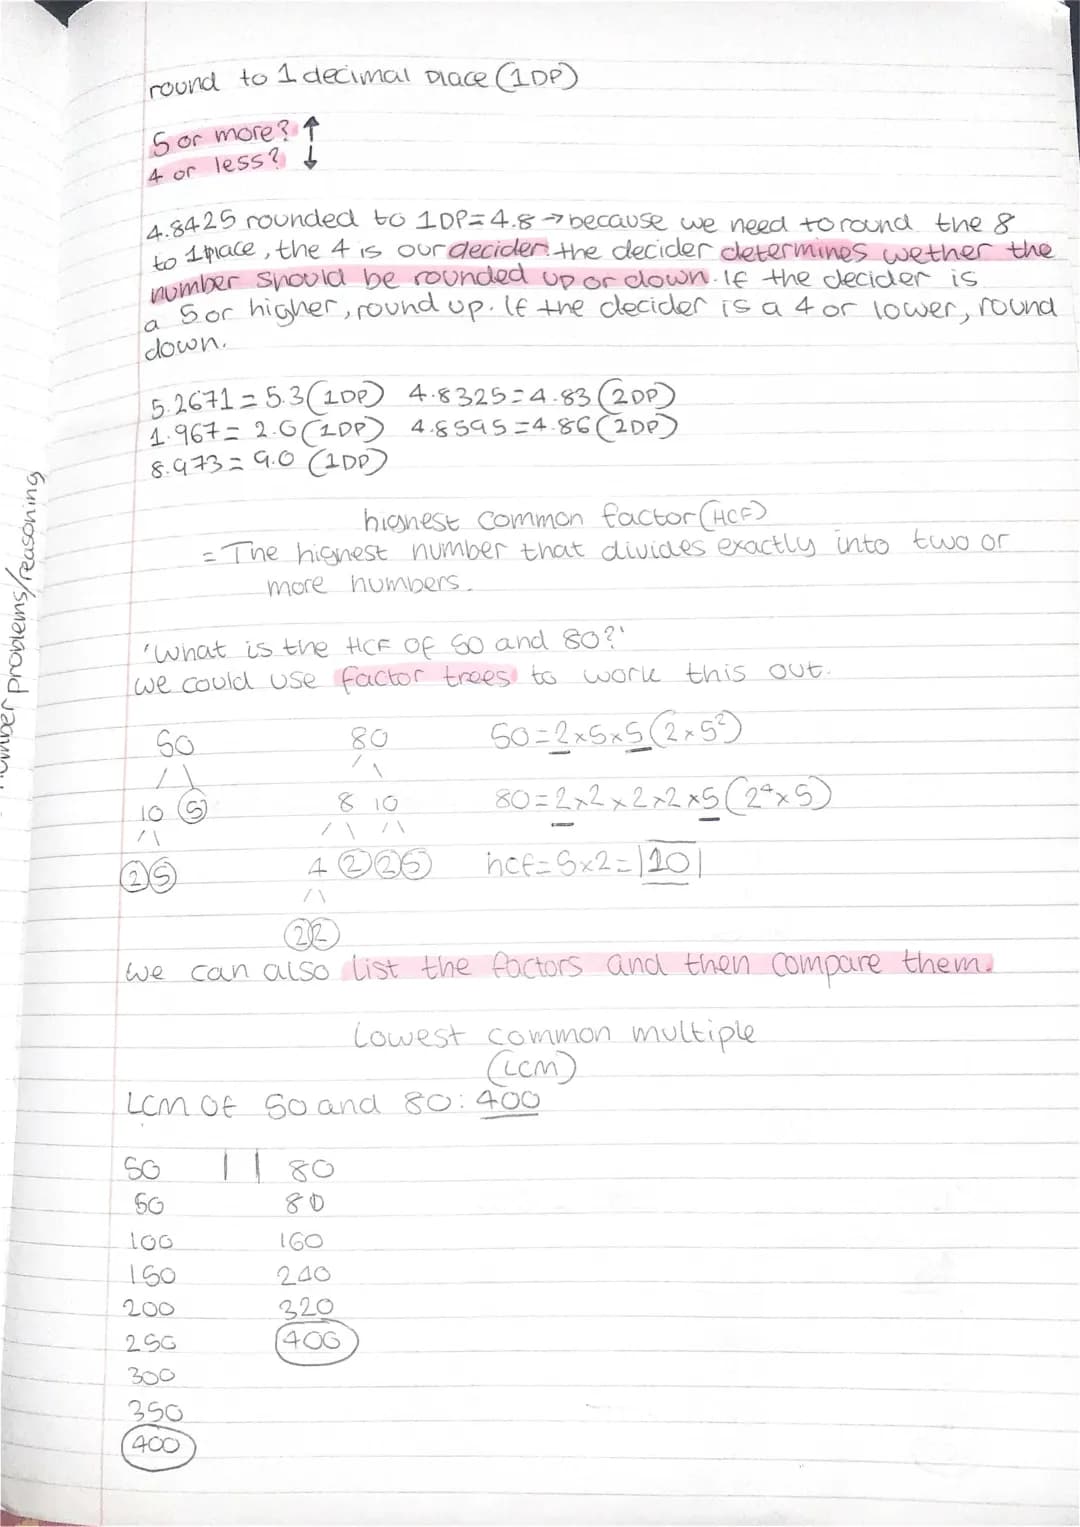 round to 1 decimal place (1DP)
5 or more? ↑
4 or less? ↓
4.8425 rounded to 1DP=4.8 → because we need to round the 8
to 1place, the 4 is our decider. the decider determines wether the
number should be rounded up or down. If the decider is
a 5 or higher, round up. If the decider is a 4 or lower, round
down.
5.2671 = 5.3 (1DP) 4.8325=4.83 (2DP)
1.967= 2.0 (1DP) 4.8595=4.86 (2DP)
8.973= 9.0 (1DP)
highest common factor (HCF)
= The highest number that divides exactly into two or
more numbers.
number problems/reasoning
'What is the HCF of 50 and 80?'
we could use factor trees to work this out.
50 80 50=2x5x5 (2x5²)
10 5 8 10 80=2x2x2x2x5 (2⁴x5)
2 5 4 2 2 5 hcf=5x2=|10|
2 2
we can also list the factors and then compare them.
Lowest common multiple
(LCM)
LCM of 50 and 80: 400
50 || 80
50 80
100 160
150 240
200 320
250 400
300
350
400